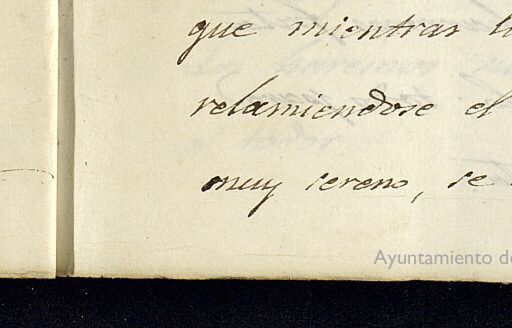 que mientras l
relamiendose el
muy sereno, se
Ayuntamiento de